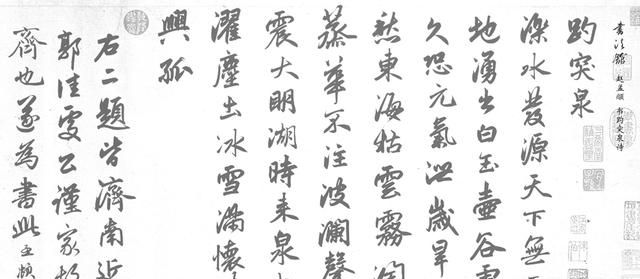 書法館 赵孟頫 书趵突泉诗
趵突泉
濼水發源天下無
地湧出白玉壺谷
久恐元氣泄歲旱
愁東海枯雲霧潤
蒸華不注波瀾聲
震大明湖時来泉
濯塵土冰雪滿懷
興孤
右二題皆濟南近
郭佳處公謹家
齊也遂為書此孟頫